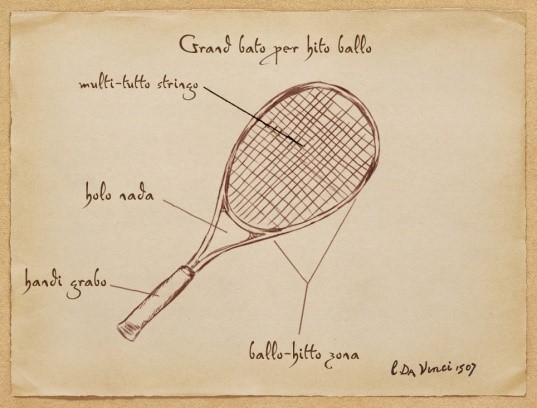 Grand bato per hito ballo
multi-tutto stringo
holo nada
handi grabo
ballo-hitto zona
L Da Vinci 1507